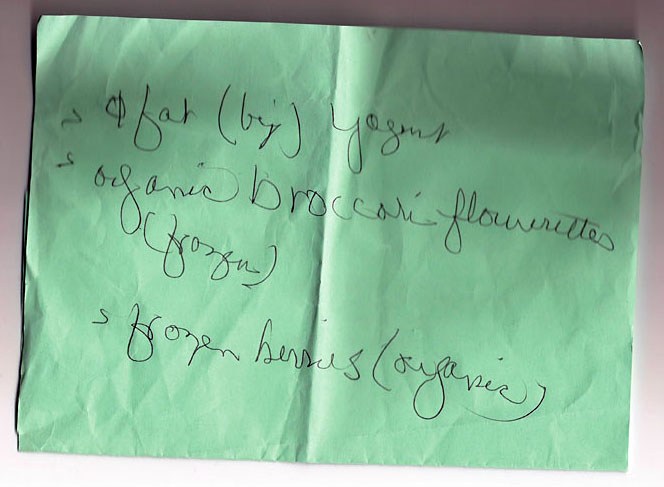 > φ fat (big) yogurt
> organic broccori flowerettes
(frozen)
> frozen berries (organic)